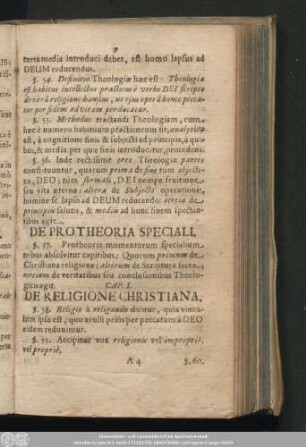 tertia media introduci debet, est homo lapsus ad
DEUM reducendus.
§. 54. Definitio Theologiæ hæc est: Theologia
est habitus intellectus practicus è verbo DEI scripto
de verâ religione haustus, ut ejus operâ homo pecca-
tor per fidem ad vitam perducatur.
§. 55. Methodus tractandi Theologiam, cum
hæc è numero habituum practicorum sit, analytica
est, à cognitione finis & subjecti ad principia, è qui-
bus, & media per quæ finis introducitur, procedens.
§. 56. Inde rectissimè tres Theologiæ partes
constituuntur, quarum prima de fine tum objecti-
vo, DEO; tum formali, DEI
vita æterna: altera de Subjecto operationis,
homine sc. lapso ad DEUM reducendo: tertia de
principiis salutis, & mediis ad hunc finem spectan-
tibus agit.
DE PROTHEORIA SPECIALI.
§. 57. Protheoria momentorum specialium
tribus absolvitur capitibus: Quorum primum de
Christiana religione; alterum de Scriptura sacra;
tertium de veritatibus seu conclusionibus Theolo-
gicis agit.
CAP. I.
DE RELIGIONE CHRISTIANA.
§. 58. Religio à religando dicitur, quia vincu-
lum ipsa est, quo avulsi priùs per peccatum à DEO
eidem redunimur.
§. 59. Accipitur vox religionis vel impropriè,
vel propriè.
K 4
§. 60.